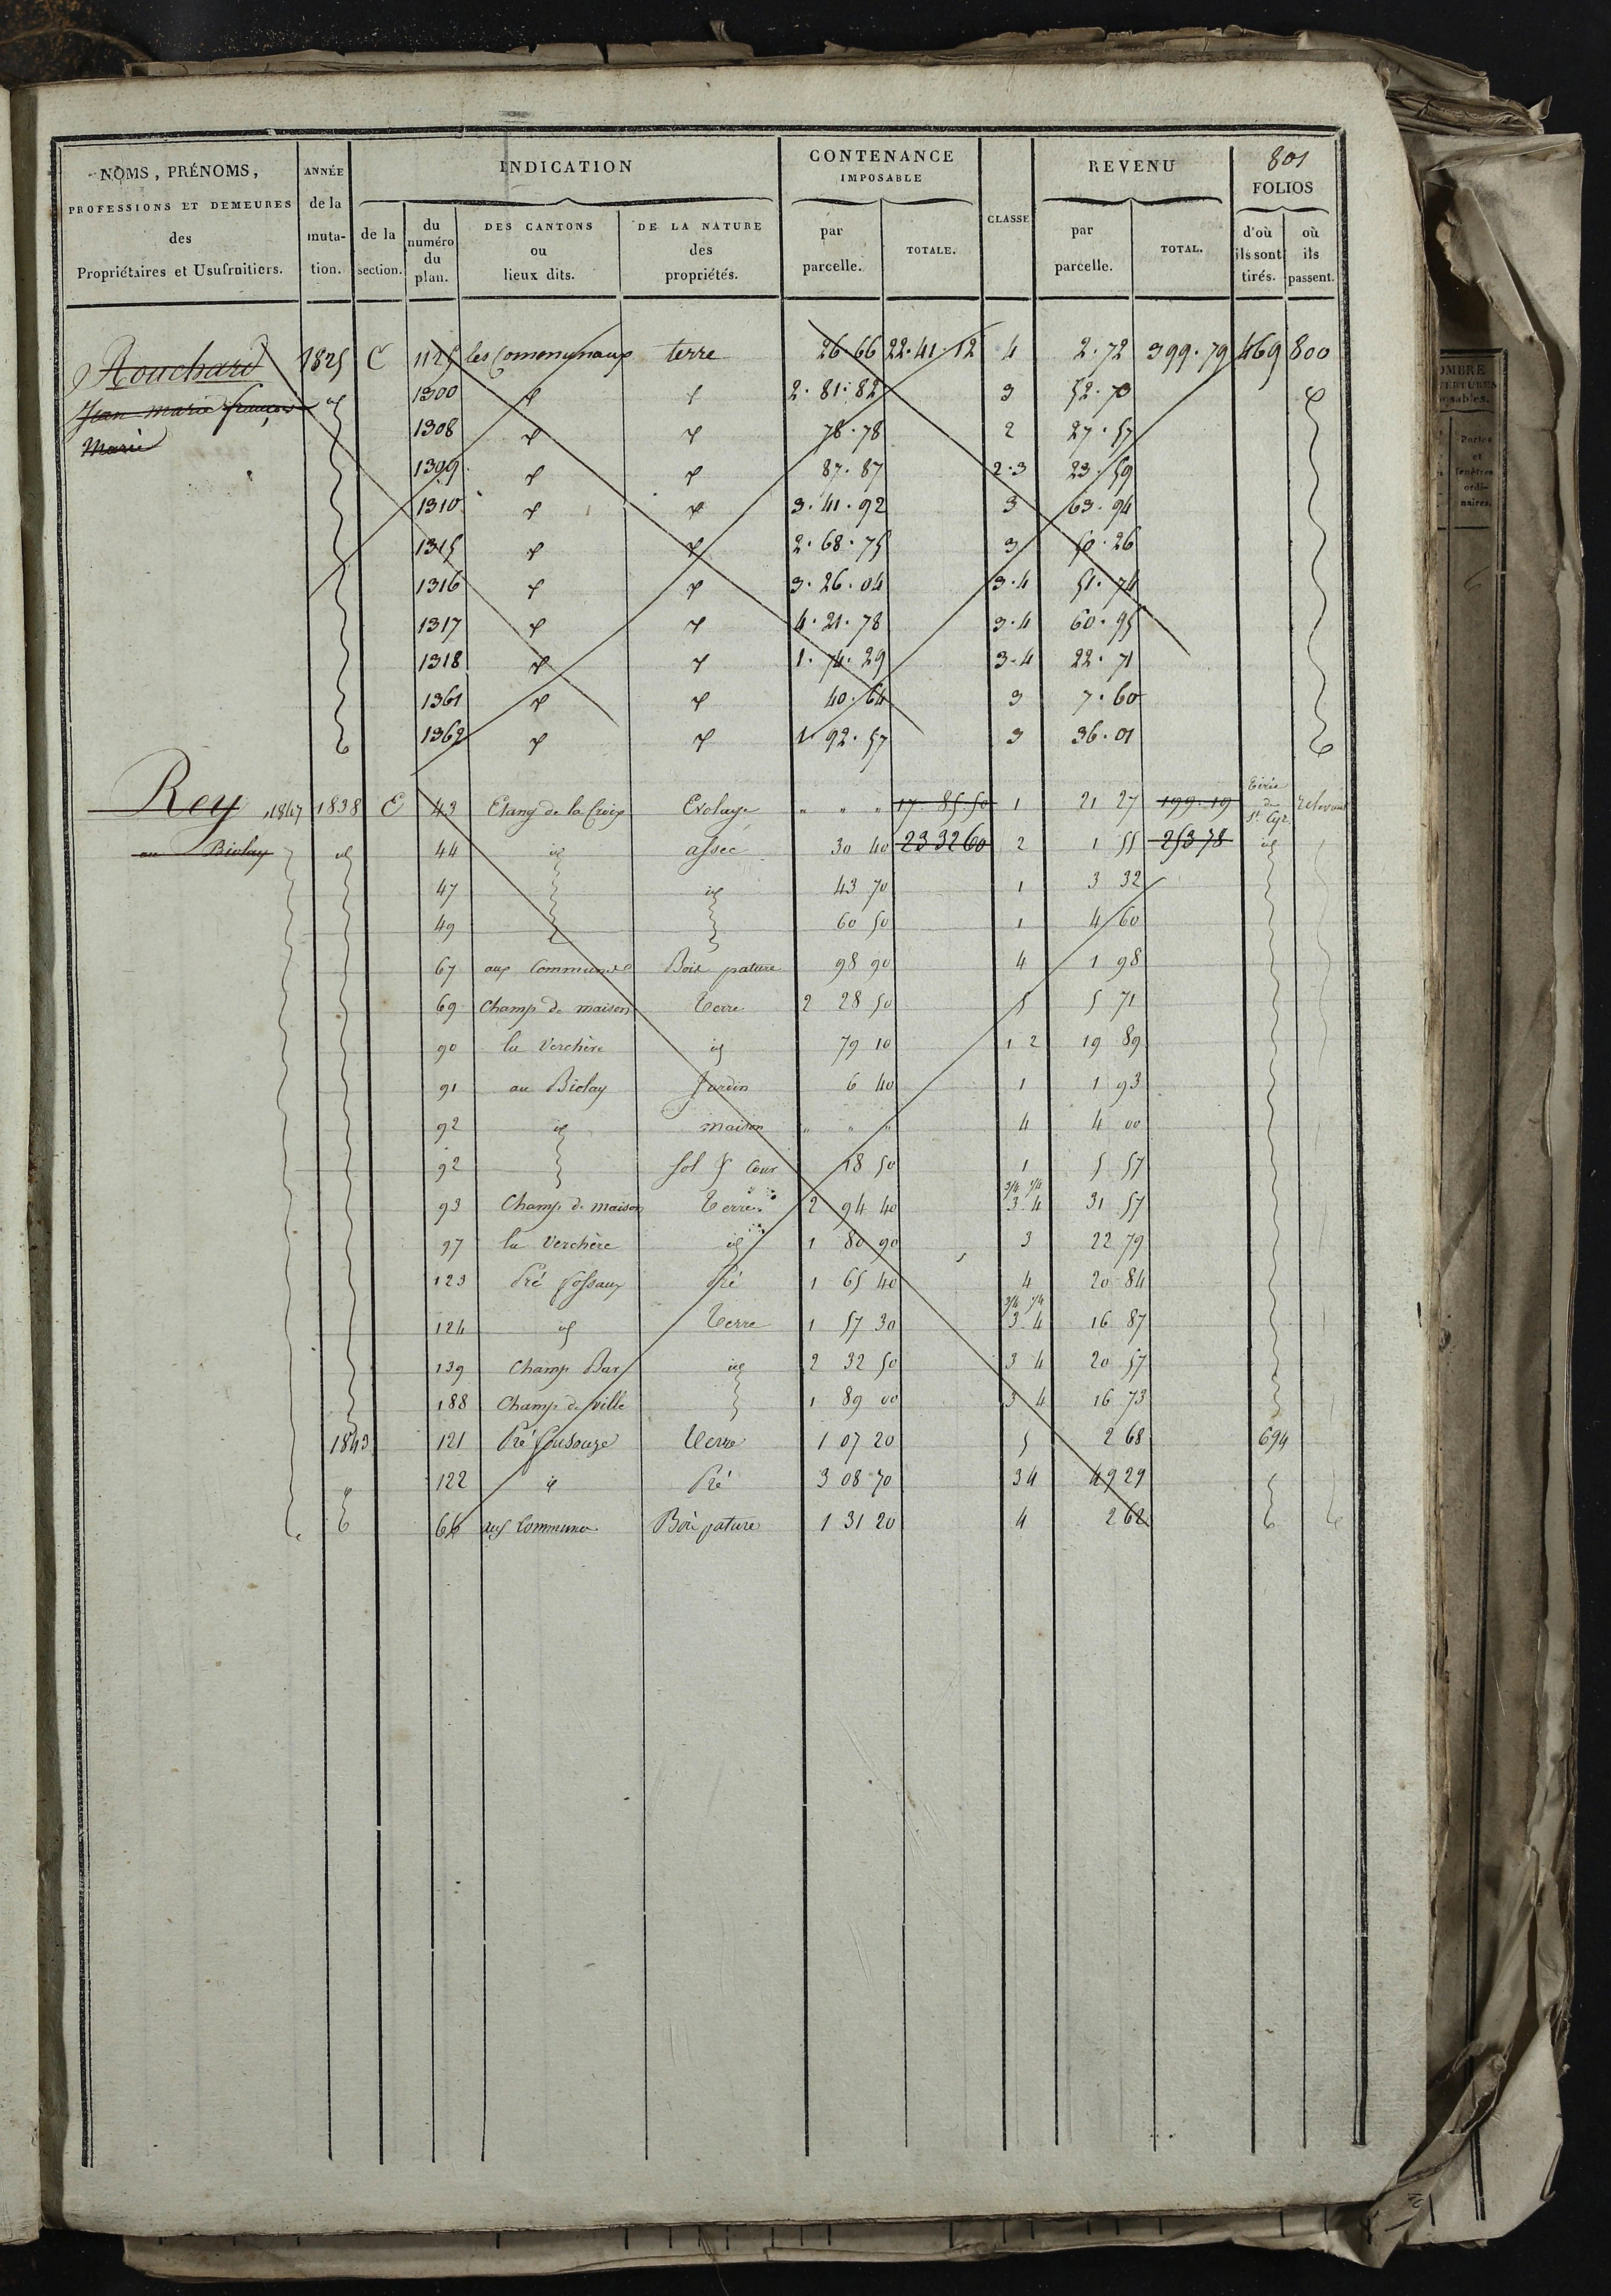 801
NOMS, PRÉNOMS, PROFESSIONS ET DEMEURES des Propriétaires et Usufruitiers.
ANNÉE de la mutation.
INDICATION
de la section.
du numéro du plan.
DES CANTONS ou lieux dits.
DE LA NATURE des propriétés.
CONTENANCE IMPOSABLE
par parcelle.
TOTALE.
CLASSE
REVENU
par parcelle.
TOTAL.
FOLIOS
d'où ils sont tirés.
où ils passent.
Rouchard 1825 C 1125 les Comonunaux terre 26.66 22.41.12 4 2.72 399.79 469 800
Jean marie françois id 1300 2.81.82 3 52.73
Marie 1308 78.78 2 27.57
1399 87.87 2.3 23.59
1310 3.41.92 3 63.94
1315 2.68.75 3 50.26
1316 3.26.04 3.4 51.74
1317 4.21.78 3.4 60.95
1318 1.74.29 3.4 22.71
1361 40.64 3 7.60
1362 1.92.57 3 36.01
Rey 1867 1838 E 43 Etang de la Croix Evolage " " " 17 85 50 1 21 27 199.19 tirés de St Cyr
au Biolay id 44 id assec 30 40 23 32 60 2 1 55 253 78 id
47 id 43 70 1 3 32
49 60 50 1 4 60
67 aux Communes Bois pature 98 90 4 1 98
69 Champ de maison Terre 2 28 50 5 5 71
90 la Verchère id 79 10 1 2 19 89
91 au Biolay Jardin 6 40 1 1 93
92 id maison " " " 4 4 00
92 sol & Cour 18 50 1 5 57
93 Champ de maison Terre 2 94 40 3/4 1/4 3 4 31 57
97 la Verchère id 1 80 90 3 22 79
123 Pré fossaux Pré 1 65 40 4 20 84
124 id Terre 1 57 30 3/4 1/4 3 4 16 87
139 Champ Bar id 2 32 50 3 4 20 57
188 Champ de ville 1 89 00 3 4 16 73
1843 121 Pré Terre 1 07 20 5 2 68 694
122 Pré 3 08 70 3 4 49 29
66 aux Communes Bois pature 1 31 20 4 2 62
OMBRE
Portes et fenêtres ordinaires.